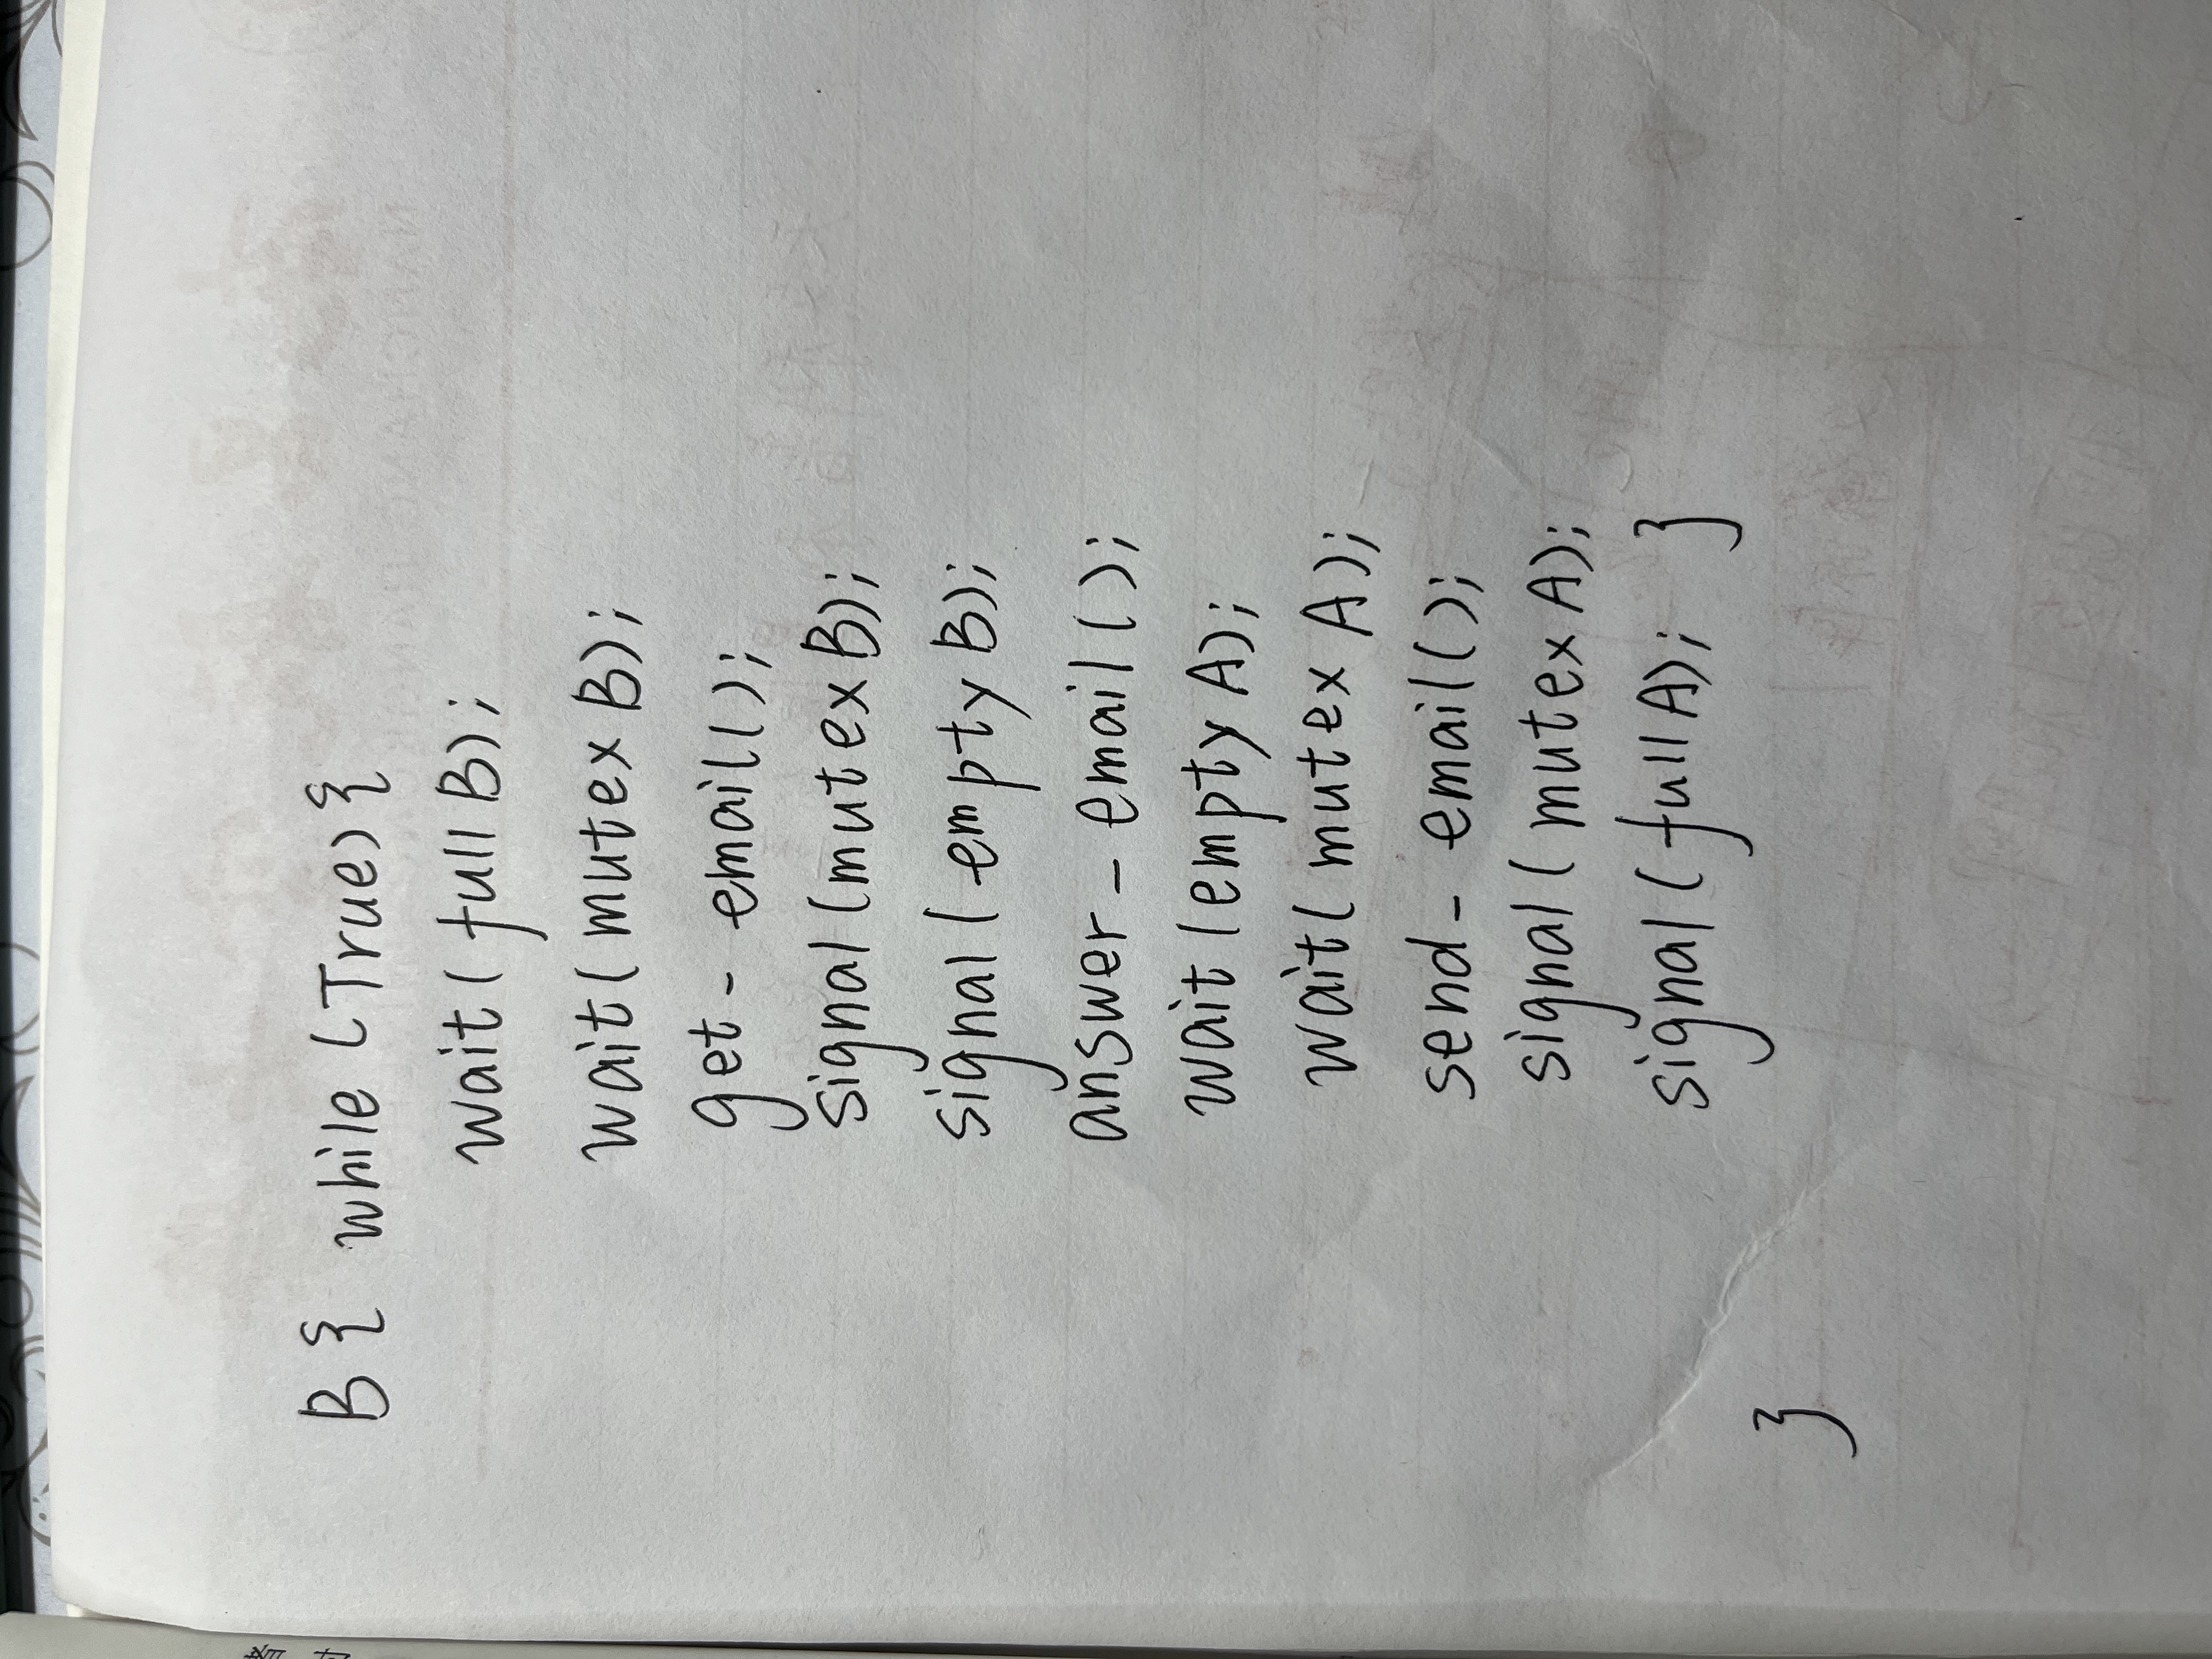 B { while (True) {
wait (full B);
wait (mutex B);
get - email();
signal (mutex B);
signal (empty B);
answer - email ();
wait (empty A);
wait (mutex A);
send - email ();
signal (mutex A);
signal (full A); }
}